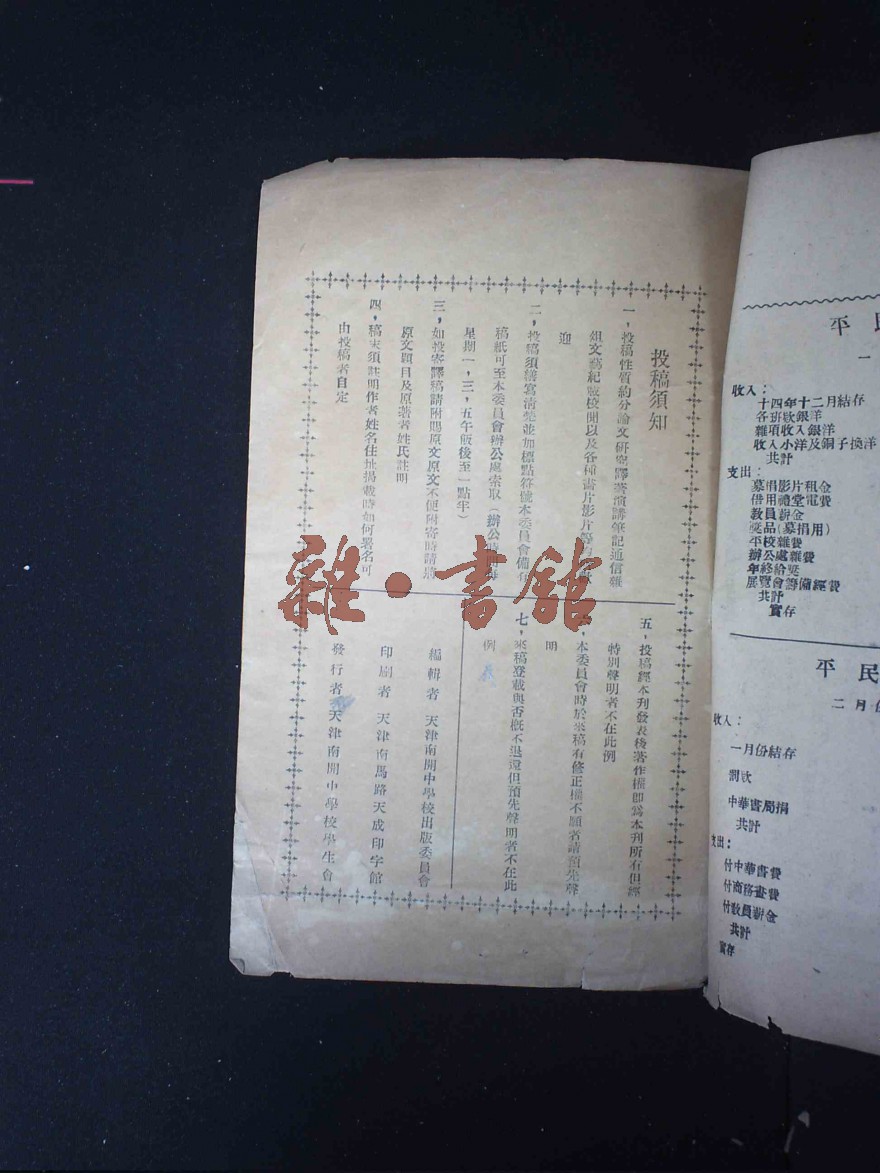 投稿須知
一，投稿性質約分論文研究譯著演講筆記通信雜
俎文藝紀載校聞以及各種畫片影片等
迎
二，投稿須繕寫清楚並加標點符號本委員會備有
稿紙可至本委員會辦公處索取（辦公時間每
星期一，三，五午飯後至一點半）
三，如投寄譯稿請附閱原文原文不便附寄時請將
原文題目及原著者姓氏註明
四，稿末須註明作者姓名住址揭載時如何署名可
由投稿者自定
五，投稿經本刊發表後著作權即為本刊所有但經
特別聲明者不在此例
本委員會時於來稿有修正權不願者請預先聲
明
七，來稿登載與否概不退還但預先聲明者不在此
例
編輯者 天津南開中學校出版委員會
印刷者 天津南馬路天成印字館
發行者 天津南開中學校學生會
雜·書館
平民
一
收入：
十四年十二月結存
各班歘銀洋
雜項收入銀洋
收入小洋及銅子換洋
共計
支出：
募捐影片租金
借用禮堂電費
教員薪金
獎品（募捐用）
平校雜費
辦公處雜費
年終給獎
展覽會籌備經費
共計
實存
平民
二月份
收入：
一月份結存
中華書局捐
共計
支出：
付中華書費
付商務畫費
付教員薪金
共計
實存